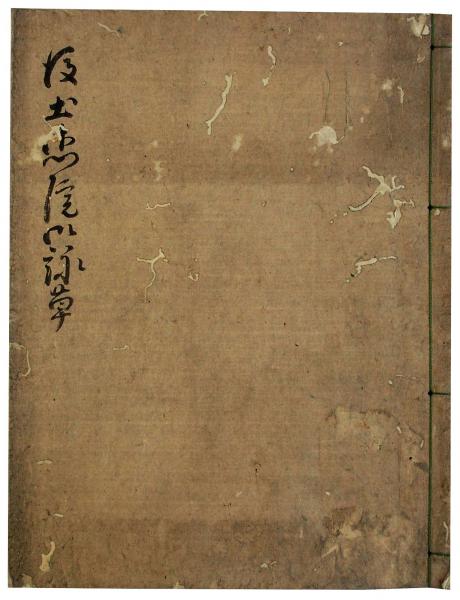 後土御門院御詠草